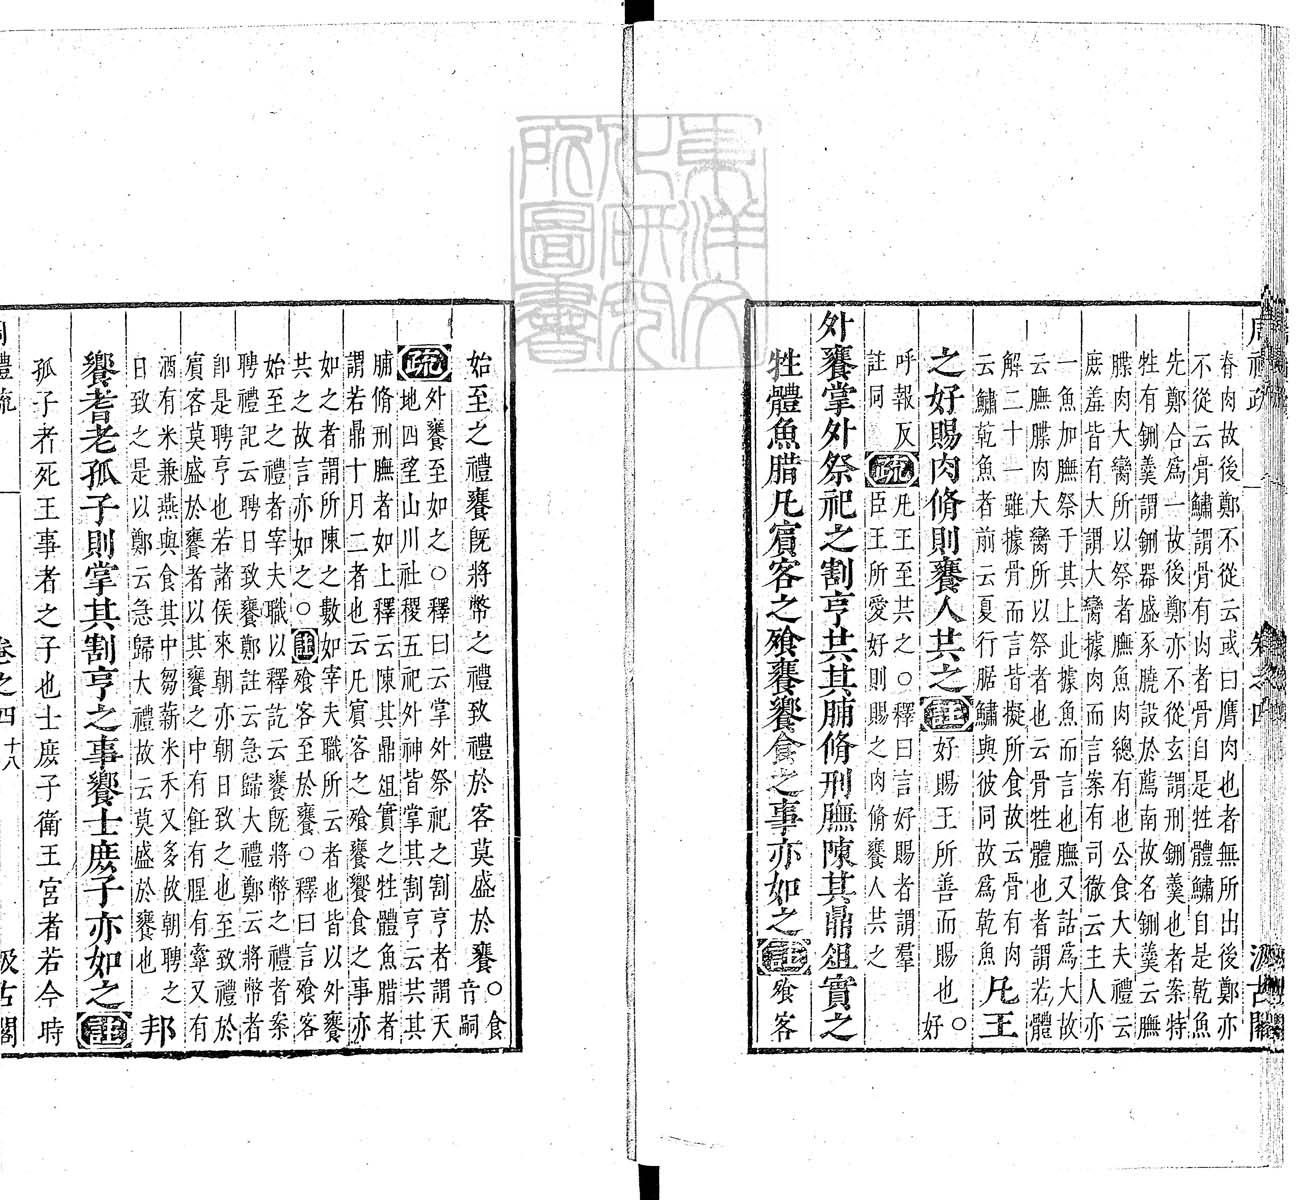 脊肉故後鄭不從云或曰膺肉也者無所出後鄭亦
不從云骨鱐謂骨有肉者骨自是牲體鱐自是乾魚
先鄭合爲一故後鄭亦不從玄謂刑鉶羹也者案特
牲有鉶羹謂鉶器盛豕臐設於薦南故名鉶羹云膴
䐑肉大臠所以祭者膴魚肉總有也公食大夫禮云
庶羞皆有大謂大臠據肉而言案有司徹云主人亦
一魚加膴祭于其上此據魚而言也膴又詁爲大故
云膴䐑肉大臠所以祭者也云骨牲體也者謂若體
解二十一雖據骨而言皆擬所食故云骨有肉
云鱐乾魚者前云夏行腒鱐與彼同故爲乾魚
凡王
之好賜肉脩則饔人共之
註
好賜王所善而賜也○好
呼報反
註同
疏
凡王至共之○釋曰言好賜者謂羣
臣王所愛好則賜之肉脩饔人共之
外饔掌外祭祀之割亨共其脯脩刑膴陳其鼎俎實之
牲體魚腊凡賔客之飧饔饗食之事亦如之
註
飧客
始至之禮饔旣將幣之禮致禮於客莫盛於饔○食
音嗣
疏
外饔至如之○釋曰云掌外祭祀之割亨者謂天
地四望山川社稷五祀外神皆掌其割亨云共其
脯脩刑膴者如上釋云陳其鼎俎實之牲體魚腊者
謂若鼎十月二者也云凡賔客之飧饔饗食之事亦
如之者謂所陳之數如宰夫職所云者也皆以外饔
共之故言亦如之○
註
飧客至於饔○釋曰言飧客
始至之禮者宰夫職以釋訖云饔旣將幣之禮者案
聘禮記云聘日致饔鄭註云急歸大禮鄭云將幣者
卽是聘亨也若諸侯來朝亦朝日致之也至致禮於
賔客莫盛於饔者以其饔之中有飪有腥有牽又有
酒有米兼燕與食其中芻薪米禾又多故朝聘之
日致之是以鄭云急歸大禮故云莫盛於饔也
邦
饗耆老孤子則掌其割亨之事饗士庶子亦如之
註
孤子者死王事者之子也士庶子衛王宮者若今時
禮疏
卷之四
十八
汲古閣